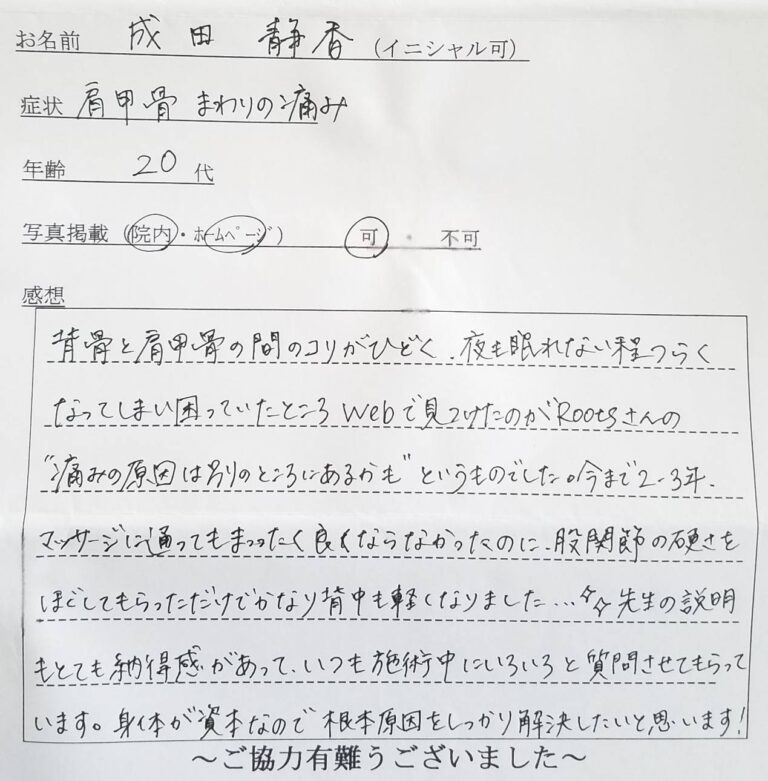 お名前 成田 静香 (イニシャル可)
症状 肩甲骨 まわりの痛み
年齢 20 代
写真掲載 (院内・ホームページ) 可 ・ 不可
感想
背骨と肩甲骨の間のコリがひどく、夜も眠れない程つらく
なってしまい困っていたところ Webで見つけたのがRootsさんの
"痛みの原因は別のところにあるかも"というものでした。今まで2-3年、
マッサージに通ってもまったく良くならなかったのに、股関節の硬さを
ほぐしてもらっただけでかなり背中も軽くなりました…✨先生の説明
もとても納得感があって、いつも施術中にいろいろと質問させてもらって
います。身体が資本なので根本原因をしっかり解決したいと思います!
～ご協力有難うございました～